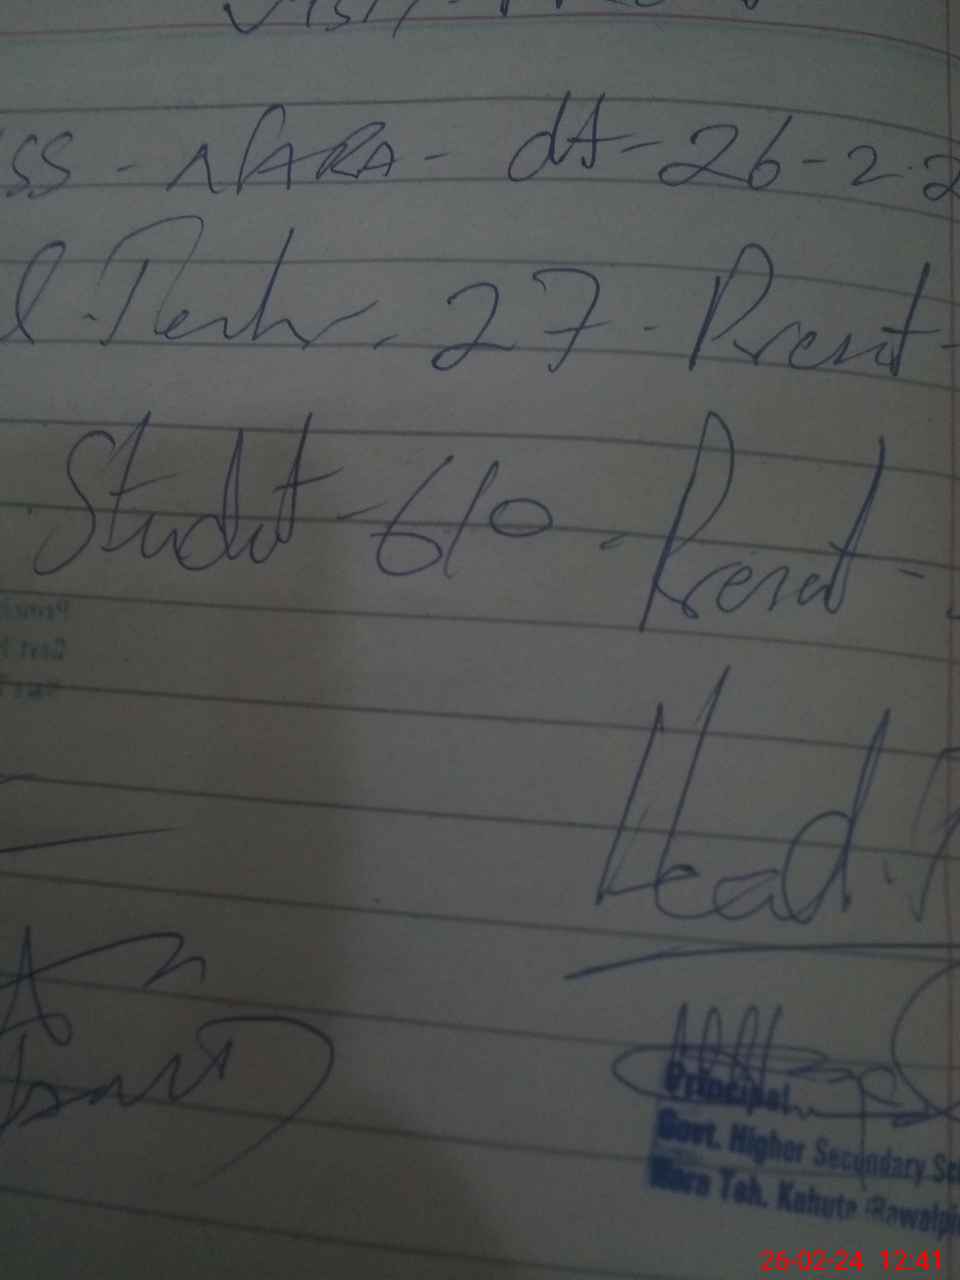 SS - NARA - dt - 26-2-2
l. Teacher - 27 - Present -
Student - 610 - Present -
Head.
Principal
Govt. Higher Secondary Sc
Nara Teh. Kahuta (Rawalpi
26-02-24 12:41